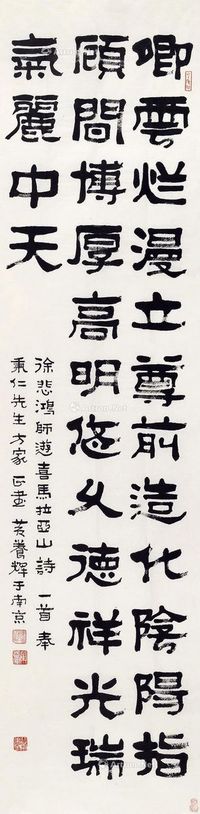 卿雲烂漫立尊前造化陰陽指
顧間博厚高明悠久德祥光瑞
氣麗中天
徐悲鴻師遊喜馬拉亞山詩一首奉
秉仁先生方家正畫 黃養輝于南京